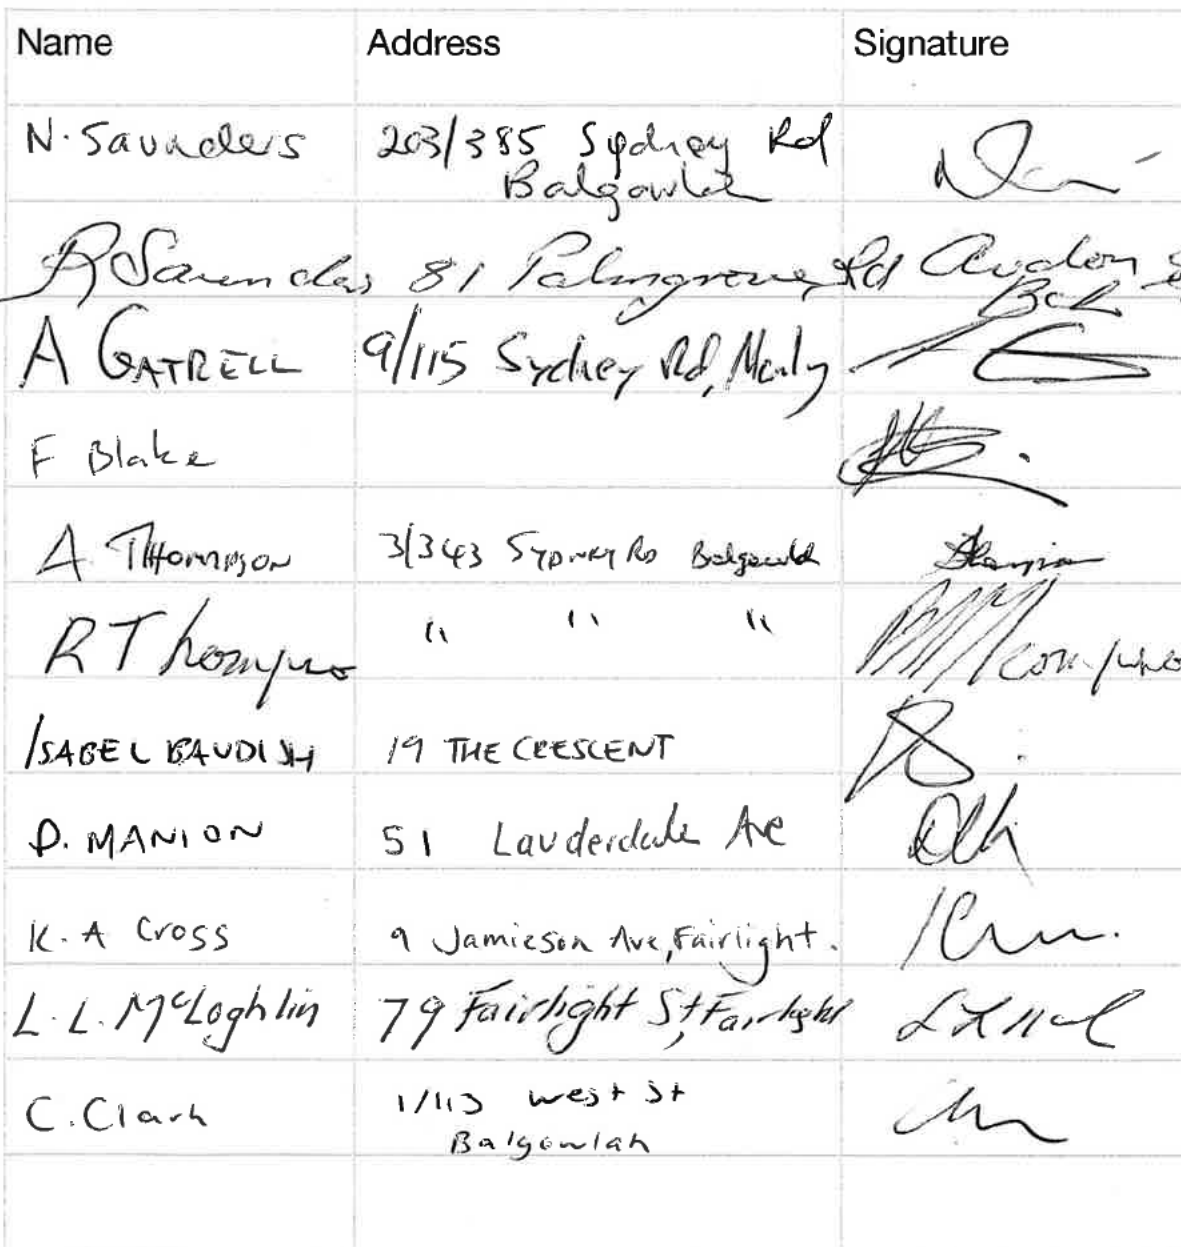 Name Address Signature
N. Saunders 203/385 Sydney Rd
Balgowlah
R Saunders 81 Palmgrove Rd Avalon
Bch
A GATRELL 9/115 Sydney Rd, Manly
F Blake
A THOMPSON 3/343 SYDNEY RD Balgowlah
R Thompso " " "
ISABEL BAUDISH 19 THE CRESCENT
D. MANION 51 Lauderdale Ave
K. A Cross 9 Jamieson Ave, Fairlight.
L. L. McLoghlin 79 Fairlight St, Fairlight
C. Clark 1/113 West St
Balgowlah